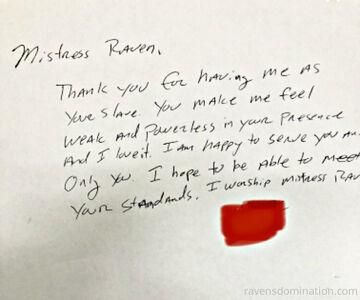 Mistress Raven,
Thank you for having me as
your slave. You make me feel
weak and powerless in your presence
And I love it. I am happy to serve you an
Only you. I hope to be able to meet
your standards. I worship mistress Rav
ravensdomination.com